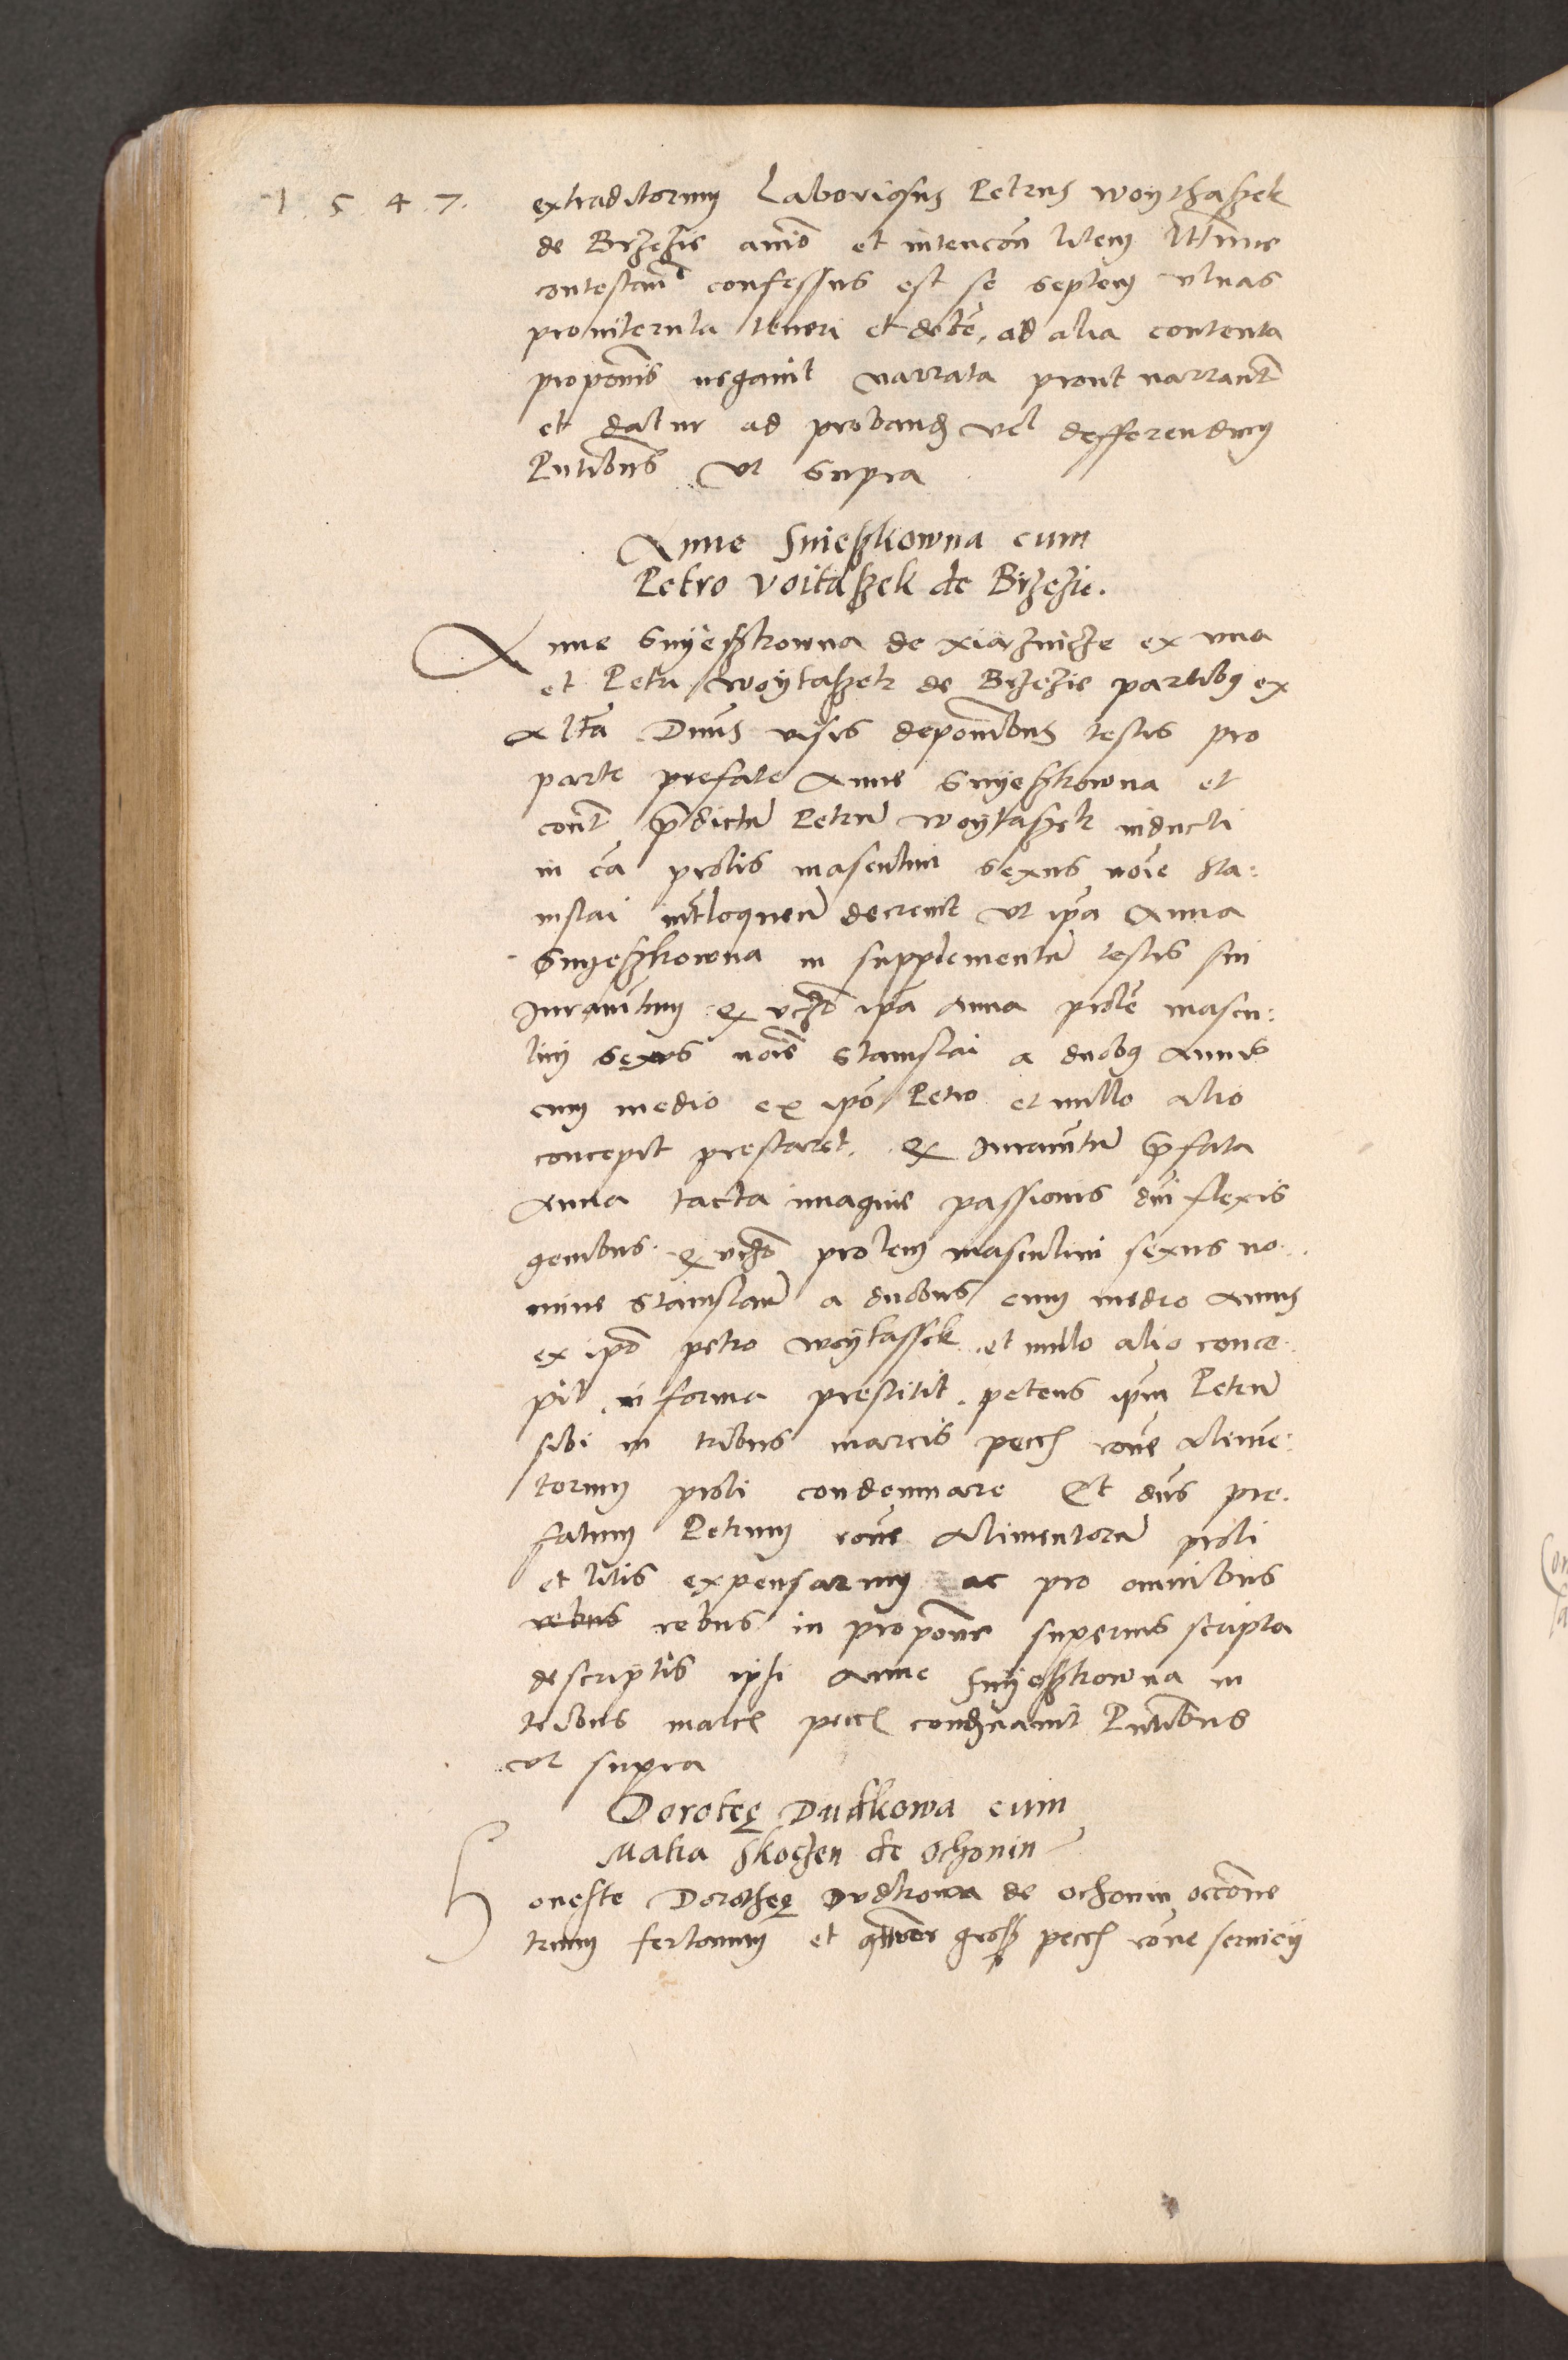 1.5.4.7.
extraditorum Laboriosus Petrus Woythaszek
de Brzezie animo et intencon litem lttime
contestan confessus est se septem vlnas
pro interula teneri et debe, ad alia contenta
propoonis negavit narrata prout narrant
et datur ad proband vel defferendum
Pntibus vt supra
Anne Snieszkowna cum
Petro Voitaszek de Brzezie.
Anne Snyeszkowna de Xiaznicze ex vna
et Petri Woytaszek de Brzezie partibus ex
altra Dnus visis deponibus testis pro
parte prefate Anne Snyeszkowna et
cont prdictu Petru Woytaszek inducti
in ca prolis masculini sexus noie Sta:
nislai intloquen decrevit vt ipa Anna
Snyeszkowna in supplementu testis sui
Iuramtum q vidz ipa Anna prole mascu:
lini sexus nois Stanislai a duobus Annis
cum medio ex ipo Petro et nullo alio
concepit prestaret. Q Iuramtu prfata
Anna tacta imagine passionis dni flexis
genibus. q vidz prolem masculini sexus no.
mine Stanislau a duobus cum medio Annis
ex ipo petro Woytassek et nullo alio conce.
pit, in forma prestitit, petens ipm Petru
sibi in tribus marcis pecc rone Alime:
torum proli condemnare Et dns pre.
fatum Petrum rone Alimentoru proli
et litis expensarum ac pro omnibus
rebus rebus in propone superius scripta
descriptis ipsi Anne Snyeszkowna in
tribus marc pecc condnavit Pntibus
vt supra
Dorotee Dudkowa cum
Matia Skoczen de Ochonin
Honeste Dorothee Dudkowa de Ochonin occone
trium fertonum et quatuor gross pecc rone servicij